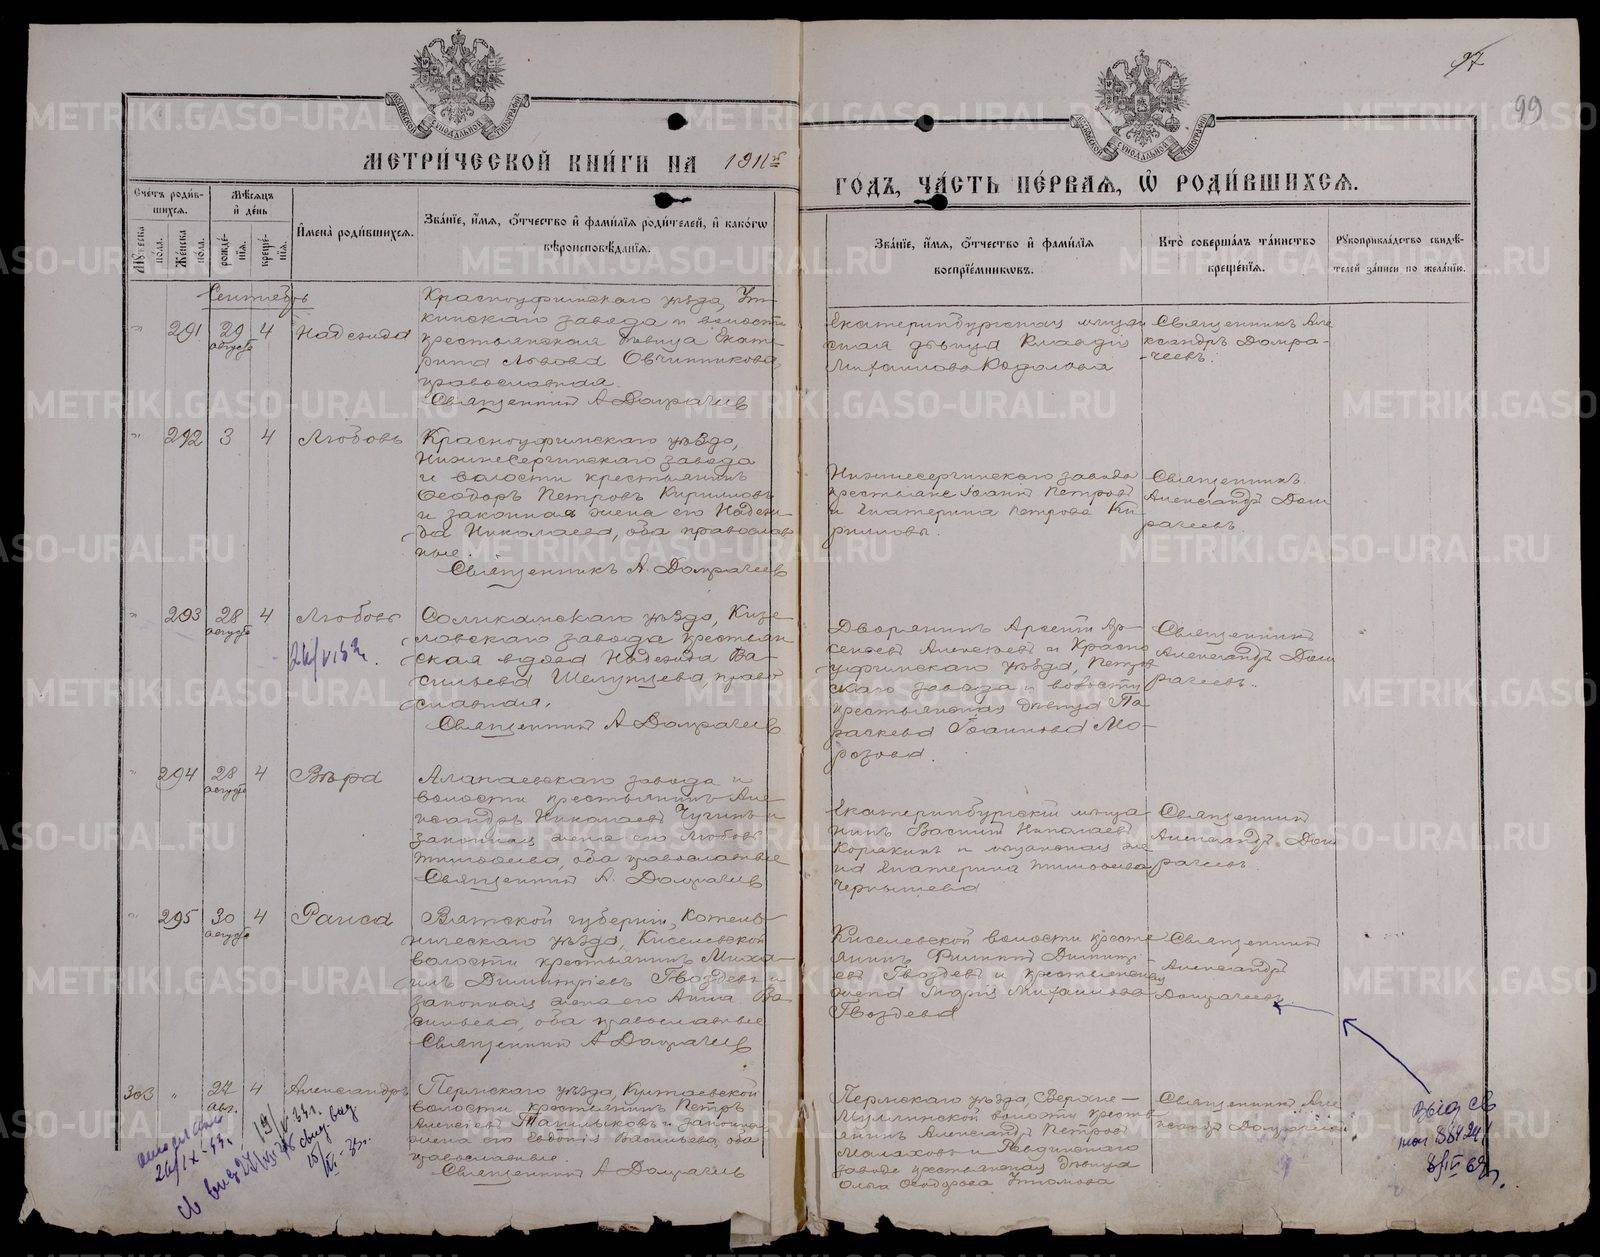 97
99
МЕТРИ́ЧЕСКОЙ КНИ́ГИ НА 1911й
ГОДЪ, ЧА́СТЬ ПЕ́РВАѦ, Ѡ҆ РОДИ́ВШИХСѦ.
Сче́тъ роди́в-
шихсѧ.
Мꙋ́жеска по́ла.
Же́нска по́ла.
Мѣ́сѧцъ и҆ де́нь
рожде́-
нїѧ.
креще́-
нїѧ.
И҆мена̀ роди́вшихсѧ.
Зва́нїе, и҆́мѧ, ѻ҆́тчество и҆ фами́лїѧ роди́телей, и҆ како́гѡ
вѣроисповѣ́данїѧ.
Зва́нїе, и҆́мѧ, ѻ҆́тчество и҆ фами́лїѧ
воспрїе́мникѡвъ.
Кто̀ соверша́лъ та́инство
креще́нїѧ.
Рꙋкоприкла́дство свидѣ́-
телей за́писи по жела́нїю.
Сентябрь
" 291 29 августа 4 Надежда
Красноуфимскаго уѣзда, Ут-
кинскаго завода и волости
крестьянская дѣвица Екате-
рина Львова Овчинникова,
православная.
Священникъ А Домрачевъ
Екатеринбургская мѣщан
ская дѣвица Клавдія
Михаилова
Священникъ Але
ксандръ Домра-
чеевъ.
" 292 3 4 Любовь
Красноуфимскаго уѣзда,
Нижнесергинскаго завода
и волости крестьянинъ
Ѳеодоръ Петровъ Кирилловъ
и законная жена его Надеж-
да Николаева, оба православ
ные.
Священникъ А. Домрачеевъ
Нижнесергинскаго завода
крестьяне Іоаннъ Петровъ
и Екатерина Петрова Ки
рилловы.
Священникъ
Александръ Дом
рачеевъ.
" 293 28 августа 4 Любовь
Соликамскаго уѣзда, Кизе-
ловскаго завода крестьян
ская вдова Надежда Ва-
сильева Шелунцева, право
славная.
Священникъ А Домрачеевъ
Дворянинъ Арсеній Ар-
сеніевъ Алексѣевъ и Красно
уфимскаго уѣзда, Петров
скаго завода и волости
крестьянская дѣвица Па-
раскева Іоаннова Мо-
розова.
Священникъ
Александръ Дом
рачеевъ.
" 294 28 августа 4 Вѣра
Алапаевскаго завода и
волости крестьянинъ Але
ксандръ Николаевъ Чугинъ и
законная жена его Любовь
Тимоѳеева, оба православные
Священникъ А. Домрачеевъ
Екатеринбургскій мѣща
нинъ Василій Николаевъ
Корякинъ и мѣщанская же
на Екатерина Тимоѳеева
Чернышева
Священникъ
Александръ Дом
рачеевъ
" 295 30 августа 4 Раиса
Вятской губерніи, Котель-
ническаго уѣзда, Киселевской
волости крестьянинъ Миха-
илъ Димитріевъ Гвоздевъ и
законная жена его Анна Ва
сильева, оба православные
Священникъ А Домрачеевъ
Киселевской волости кресть
янинъ Филиппъ Димитрі-
евъ Гвоздевъ и крестьянская
жена Марія Михаилова
Гвоздева
Священникъ
Александръ
Домрачеевъ
303 " 24 авг. 4 Александръ
Пермскаго уѣзда, Култаевской
волости крестьянинъ Петръ
Алексѣевъ Тагильцовъ и законная
жена его Евдокія Васильева, оба
православные.
Священникъ А Домрачеевъ
Пермскаго уѣзда, Верхне-
Муллинской волости кресть
янинъ Александръ Петровъ
Малаховъ и Ревдинскаго
завода крестьянская дѣвица
Ольга Ѳеодорова Утюмова
Священникъ Але
ксандръ Домрачеевъ